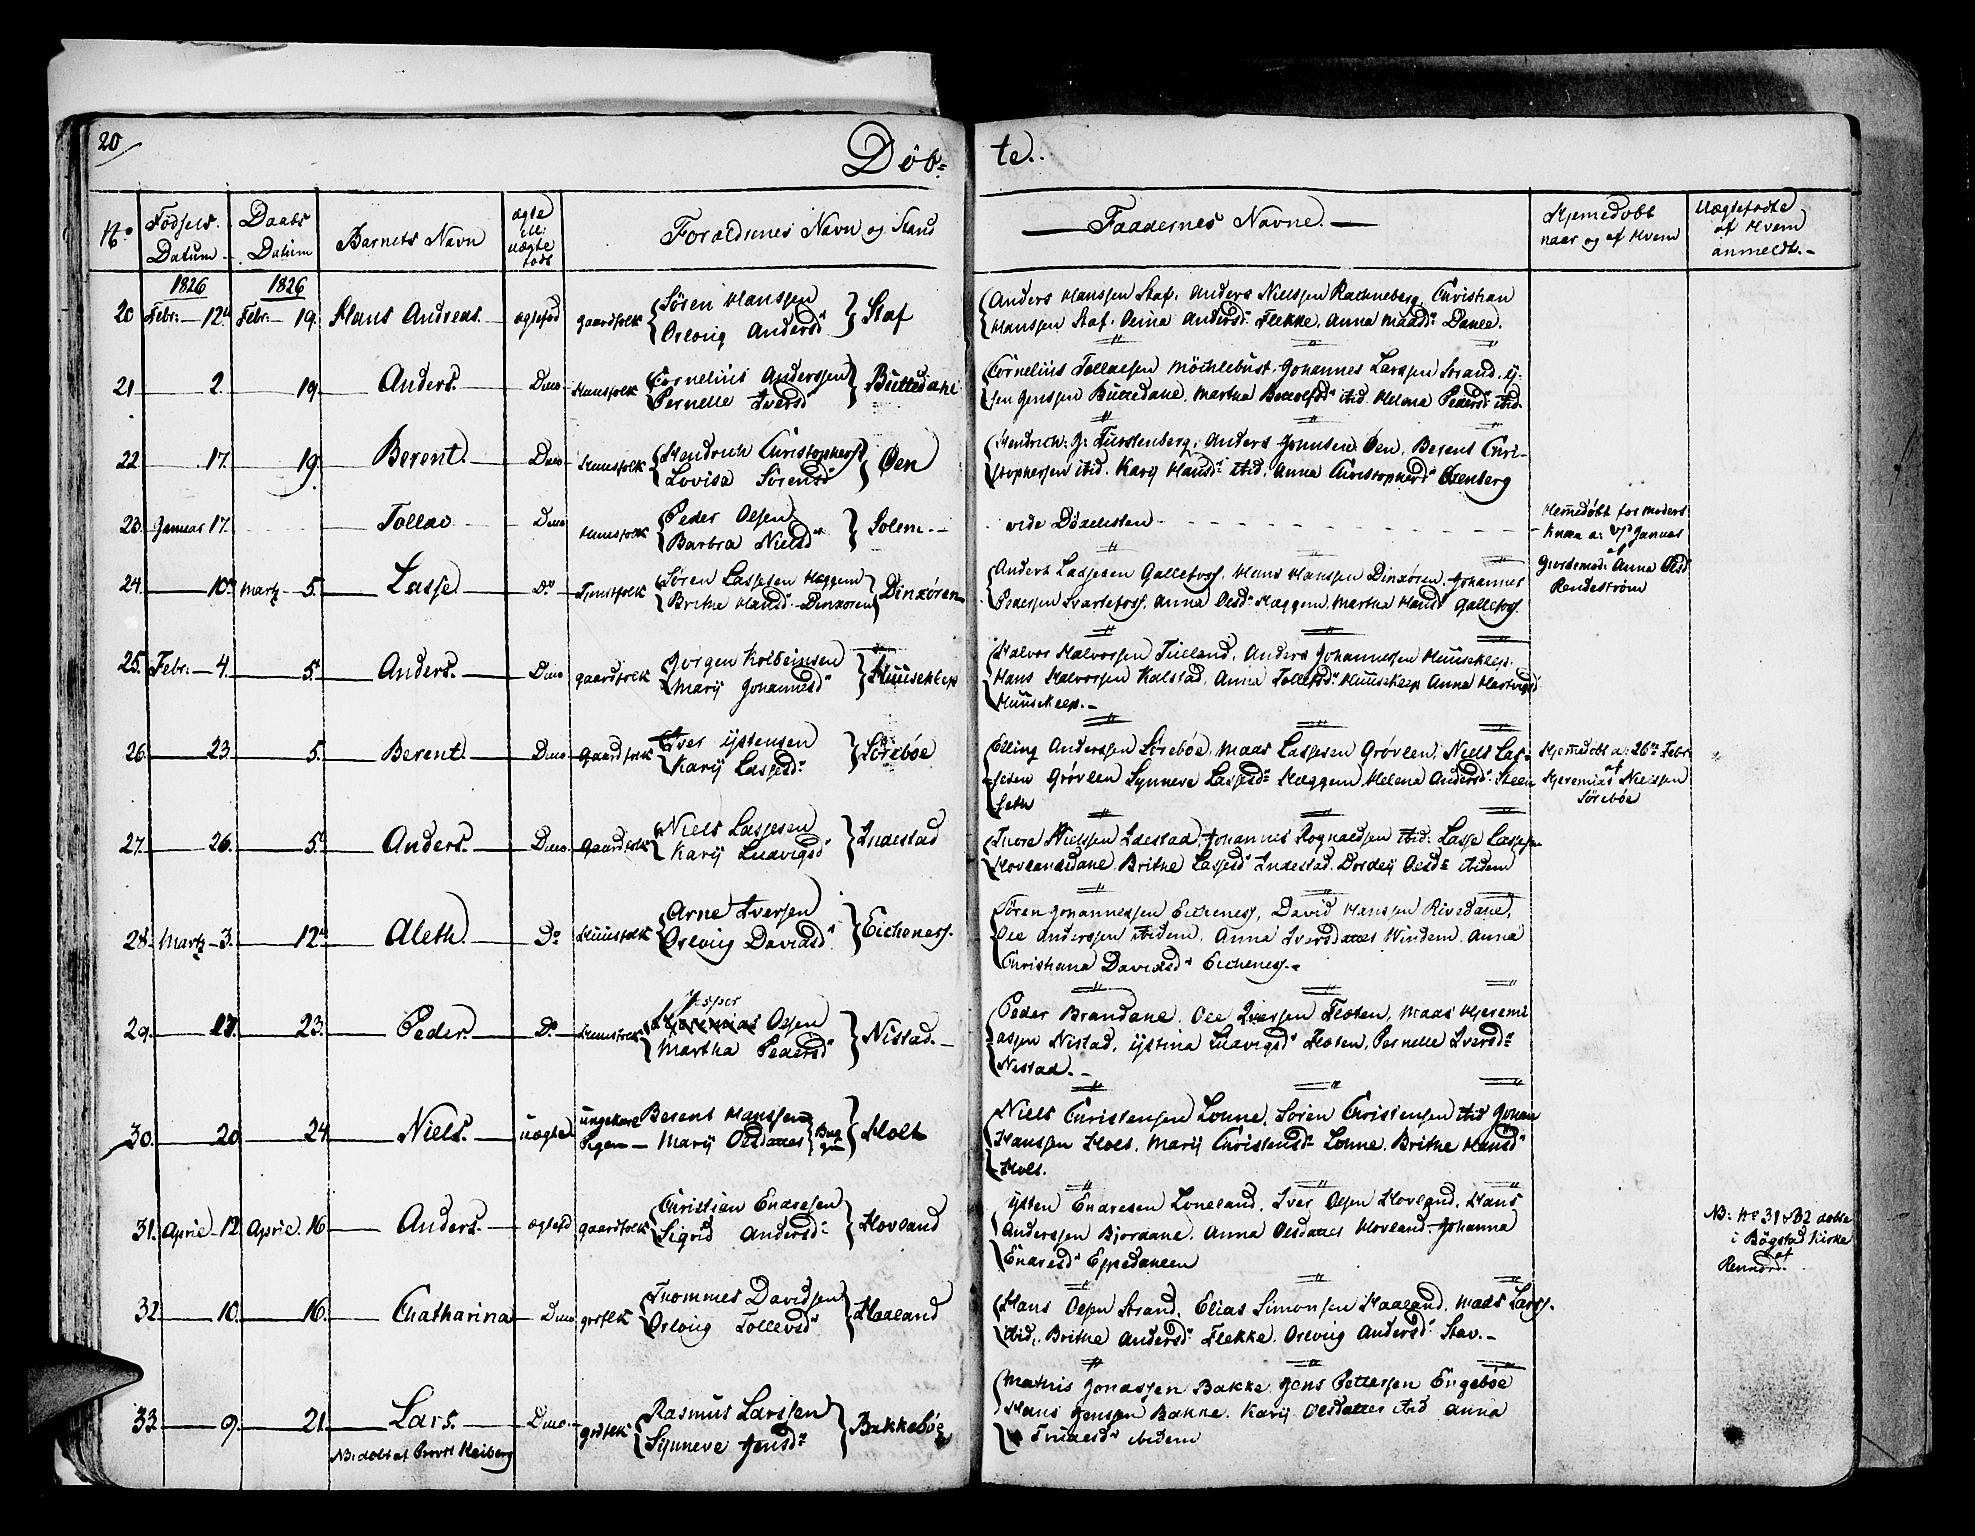 20
Döb=
te.
No
Födsels Datum
Daabs Datum
Barnets Navn
ægte ell: uægte födt
Forældrenes Navn og Stand
Faddernes Navne.
Hjemedöbt naar og af Hvem
Uægtefödte af Hvem anmeldt.
1826
1826
20 Febr. 12 Febr. 19. Hans Andreas. ægtefød gaardfolk Søren Hanssen Staf
Orloug Andersd:
Anders Hanssen Staf. Anders Nielssen Rathneberg. Christian
Hanssen Staf. Andersd: Flekke. Anna Maasd: Danle.
21 2. 19. Anders. Duo Huusfolk Cornelius Anderssen
Pernelle Iversd
Cornelius Tollaksen Johannes Larssen Strand.
sen Jenssen Martha ibid. Helena Pedersd: ibid.
22 17. 19. Berent. Duo Huusfolk Hendrich Christophers Øen
Lovisa Sörensd
Hendrich: J: Fürstenberg. Anders Øen. Berent Chri-
stophersen ibid. Karij Hansd: ibid. Anna Christophersd:
23. Januar 17. Tollac Duo Huusfolk Peder Olsen Solem
Barbra Nielsd
vide Dödelisten
Hjemedöbt for Moders
Knæe a: 17d Januar
af
Jordemod: Anna Olsd
Rendeström
24. 10. Martz 5. Lasse. Do Tienstfolk Sören Lassesen Hæggem
Brithe Hansd. Dinxören Dinxören
Anders Lassesen Gallefoss. Hans Hanssen Dinxören. Johannes
Pederssen Svartefoss. Anna Olsd: Hæggem. Martha Hansd: Gallefoss.
25. Febr. 4. 5. Anders. Duo gaardfolk Jörgen Kolbeinsen
Marij Johannesd Huuseklep
Halvor Halvorsen Anders Johannessen Huuseklep.
Hans Halvorsen Kalstad. Anna Tollefsd: Huuseklep Anna Hartvigsd
Huuseklep.
26. 23. 5. Berent. Duo Gaardfolk Iver ijstensen Sörebøe
Karij Lassesd:
Elling Anderssen Sörebøe. Maas Lassesen Grøvlen. Niels Las-
sesen Grøvlen Synneve Lassesd: Hæggem. Helena Andersd: Steen
seth
Hjemedöbt a: 26de Febr
af
Hjeremias Nielssen
Sörebøe
27. 26. 5. Anders. Duo Gaardfolk Niels Lassesen Indestad
Karij Ludvigsd
Tuore Nielssen Johannes Rognaldsen ibid: Lasse Lassesen
Hovlandsdane. Brithe Lassesd Indestad. Dordeij Olsd: ibidem
28. Martz 3. 12. Aleth. Do Huusfolk Arne Iversen Eicheness.
Orloug Davidsd
Sören Johannessen Eichenes, David Hanssen Rivedane,
Ole Anderssen ibidem. Anna Iversdatter Windem. Anna
Christiana Davidsd: Eichenes.
29. 17. 23. Peder. Do Huusfolk Jesper
Olsen Nistad.
Martha Pedersd
Peder Brandane. Ole Iversen Floten. Maas Hjeremi
assen Nistad. ijstina Ludvigsd Floten. Pernelle Iversd:
Nistad.
30. 20. 24. Niels. uægte ungekarl Berent Hanssen
Pigen Marij Olsdatter Holt
Niels Christensen Lonne. Sören Christensen ibid Johan
Hanssen Holt. Marij Christensd: Lonne. Brithe Hansd
Holt.
31. April 12 April. 16 Anders. ægtefd gaardfolk Christian Endresen Hovland
Sigrid Andersd:
ijsten Endresen Loneland. Iver Olsen Hovland. Hans
Anderssen Bjordane. Anna Olsdatter Hovland. Johanna
Endresd: Eppedaleen
NB: No 31 & 32 döbte
i Bögstad Kirke
af
32. 10. 16. Chatharina Duo grdfolk Thommes Davidsen Haaland
Orloug Tollevsd
Hans Olsen Strand. Elias Simonsen Haaland. Mads Larss.
ibid. Brithe Andersd: Flekke. Orloug Andersd: Stav.
33. 9. 21. Lars. Duo grdfolk Rasmus Larssen Bakkebøe
Synneve Jensd:
NB: döbt af Provst Heiberg
Mathis Jonassen Bakke. Jens Pettersen Engebøe
Hans Jenssen Bakke. Karij Olsdatter ibid Anna
ibidem